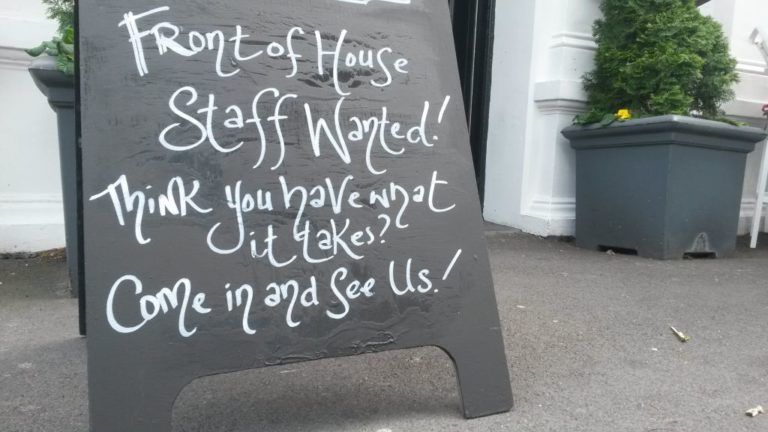 Front of House
Staff Wanted!
Think you have what
it takes?
Come in and See Us!